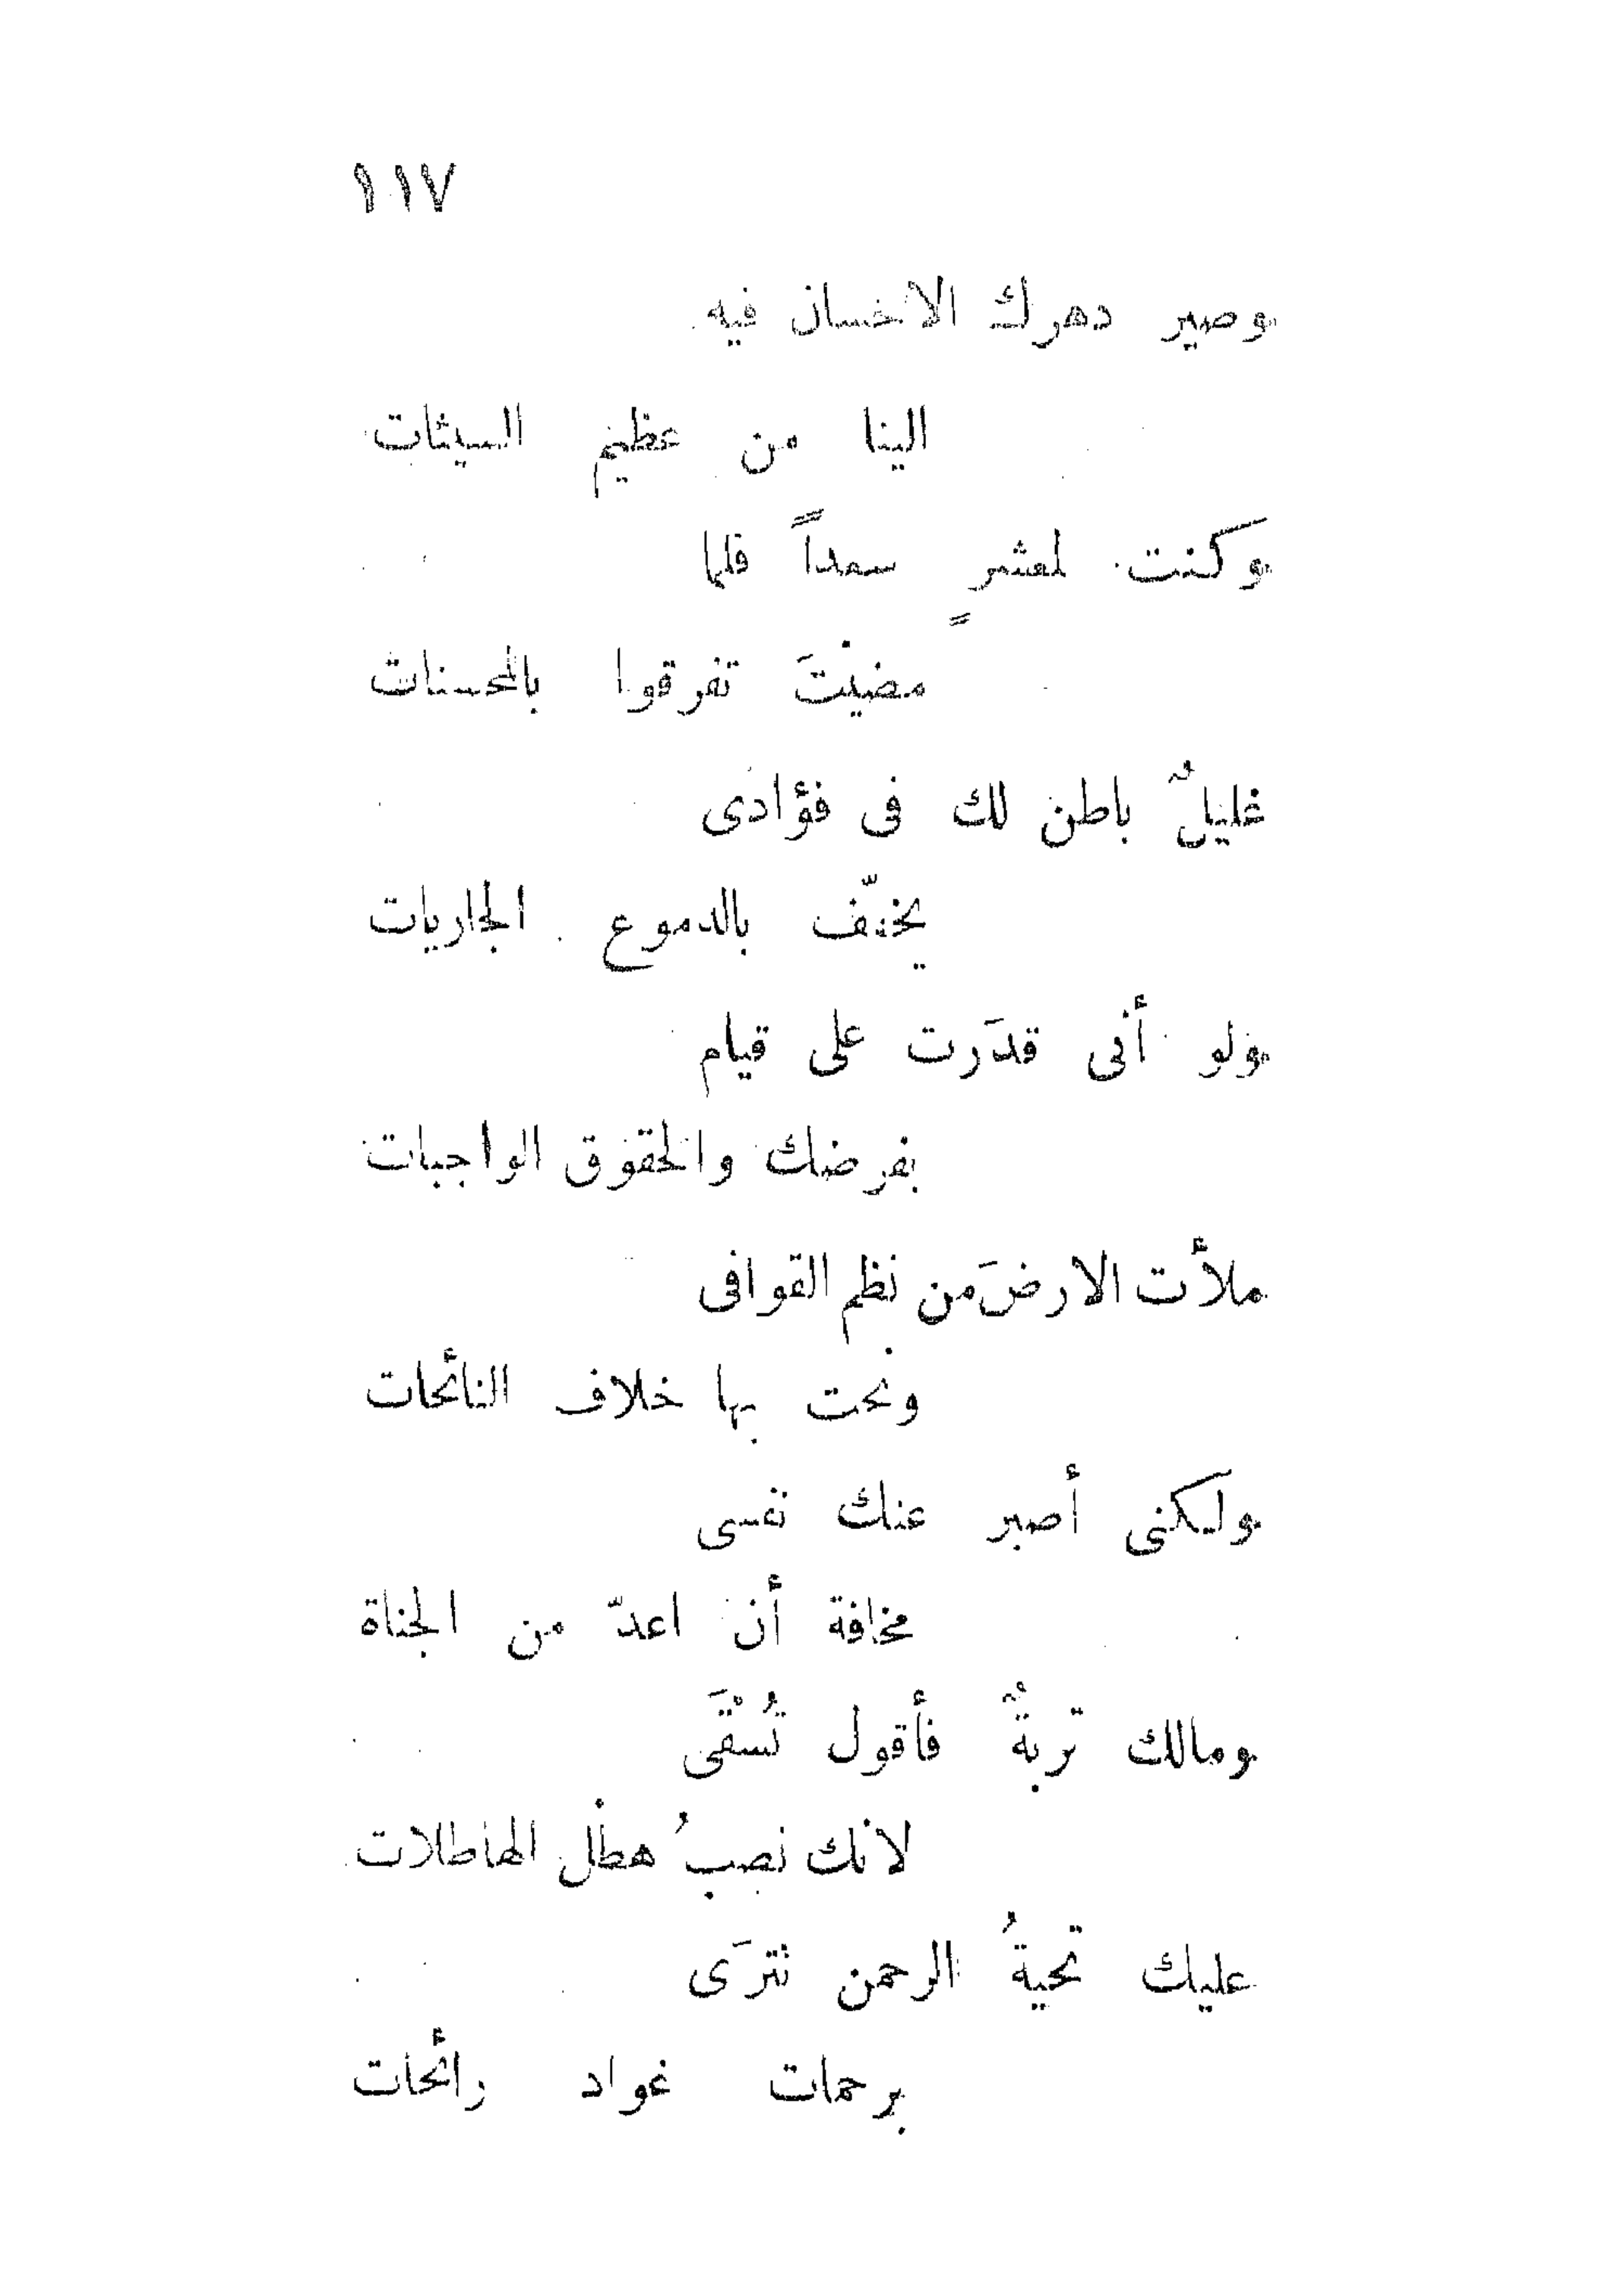 ١١٧
وصير دهرك الاحسان فيه
الينا من عظيم السيئات
وكنت لمعشرٍ سعداً فلما
مضيْتَ تفرقوا بالمحسنات
غليلٌ باطن لك فى فؤادى
يخفّف بالدموع الجاريات
ولو أنى قدَرت على قيام
بفرضك والحقوق الواجبات
ملأت الارضَ من نظم القوافى
ونحت بها خلاف النائحات
ولكنى أصبر عنك نفسى
مخافة أن اعدّ من الجناة
ومالك تربةٌ فأقول تُسْقَى
لانك نصبُ هطْل الهاطلات
عليك تحيةُ الرحمن تترَى
برحمات غواد رائحات